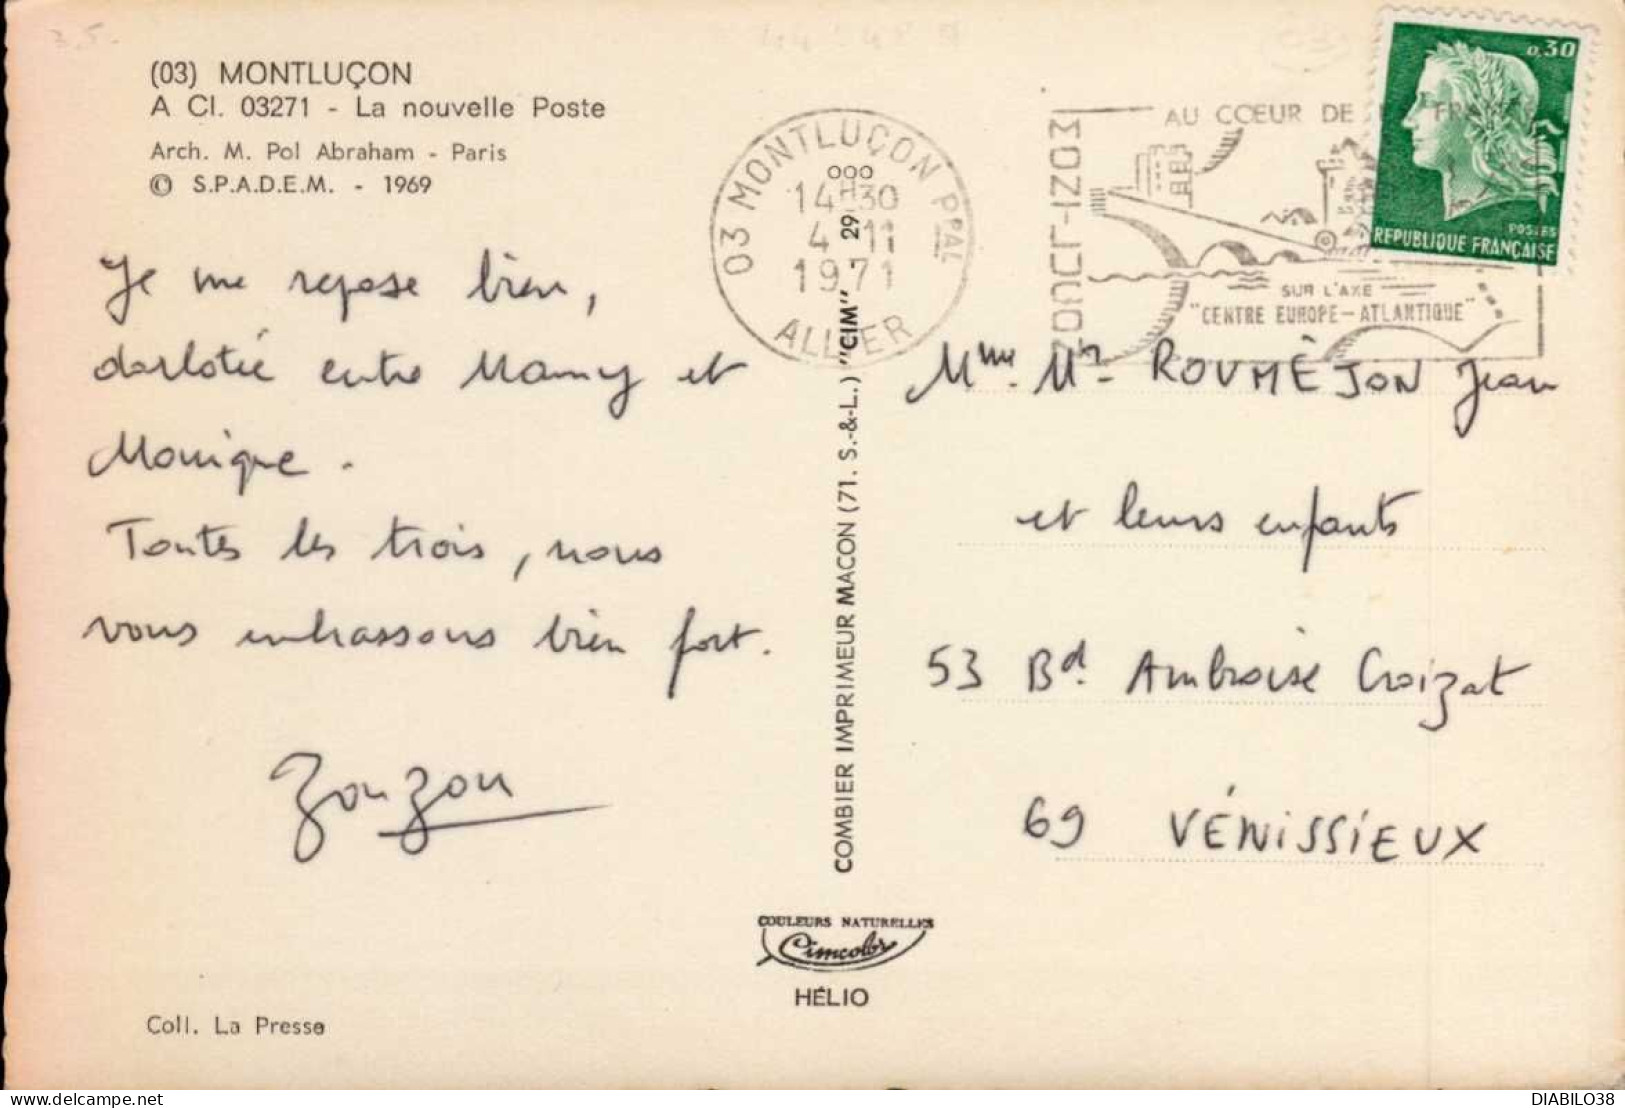 (03) MONTLUÇON
A Cl. 03271 - La nouvelle Poste
Arch. M. Pol Abraham - Paris
© S.P.A.D.E.M. - 1969
Je me repose bien,
dorlotée entre Mamy et
Monique.
Toutes les trois, nous
vous embrassons bien fort.
Zouzou
Coll. La Presse
03 MONTLUÇON PPAL
14H30
4-11
1971
ALLIER
COMBIER IMPRIMEUR MACON (71. S.-&-L.) "CIM"
COULEURS NATURELLES
Cimcolor
HÉLIO
MONTLUÇON
AU CŒUR DE LA FRANCE
SUR L'AXE
"CENTRE EUROPE-ATLANTIQUE"
0,30
POSTES
REPUBLIQUE FRANÇAISE
Mme. Mr. ROUMÈJON Jean
et leurs enfants
53 Bd. Ambroise Croizat
69 VÉNISSIEUX
DIABILO38